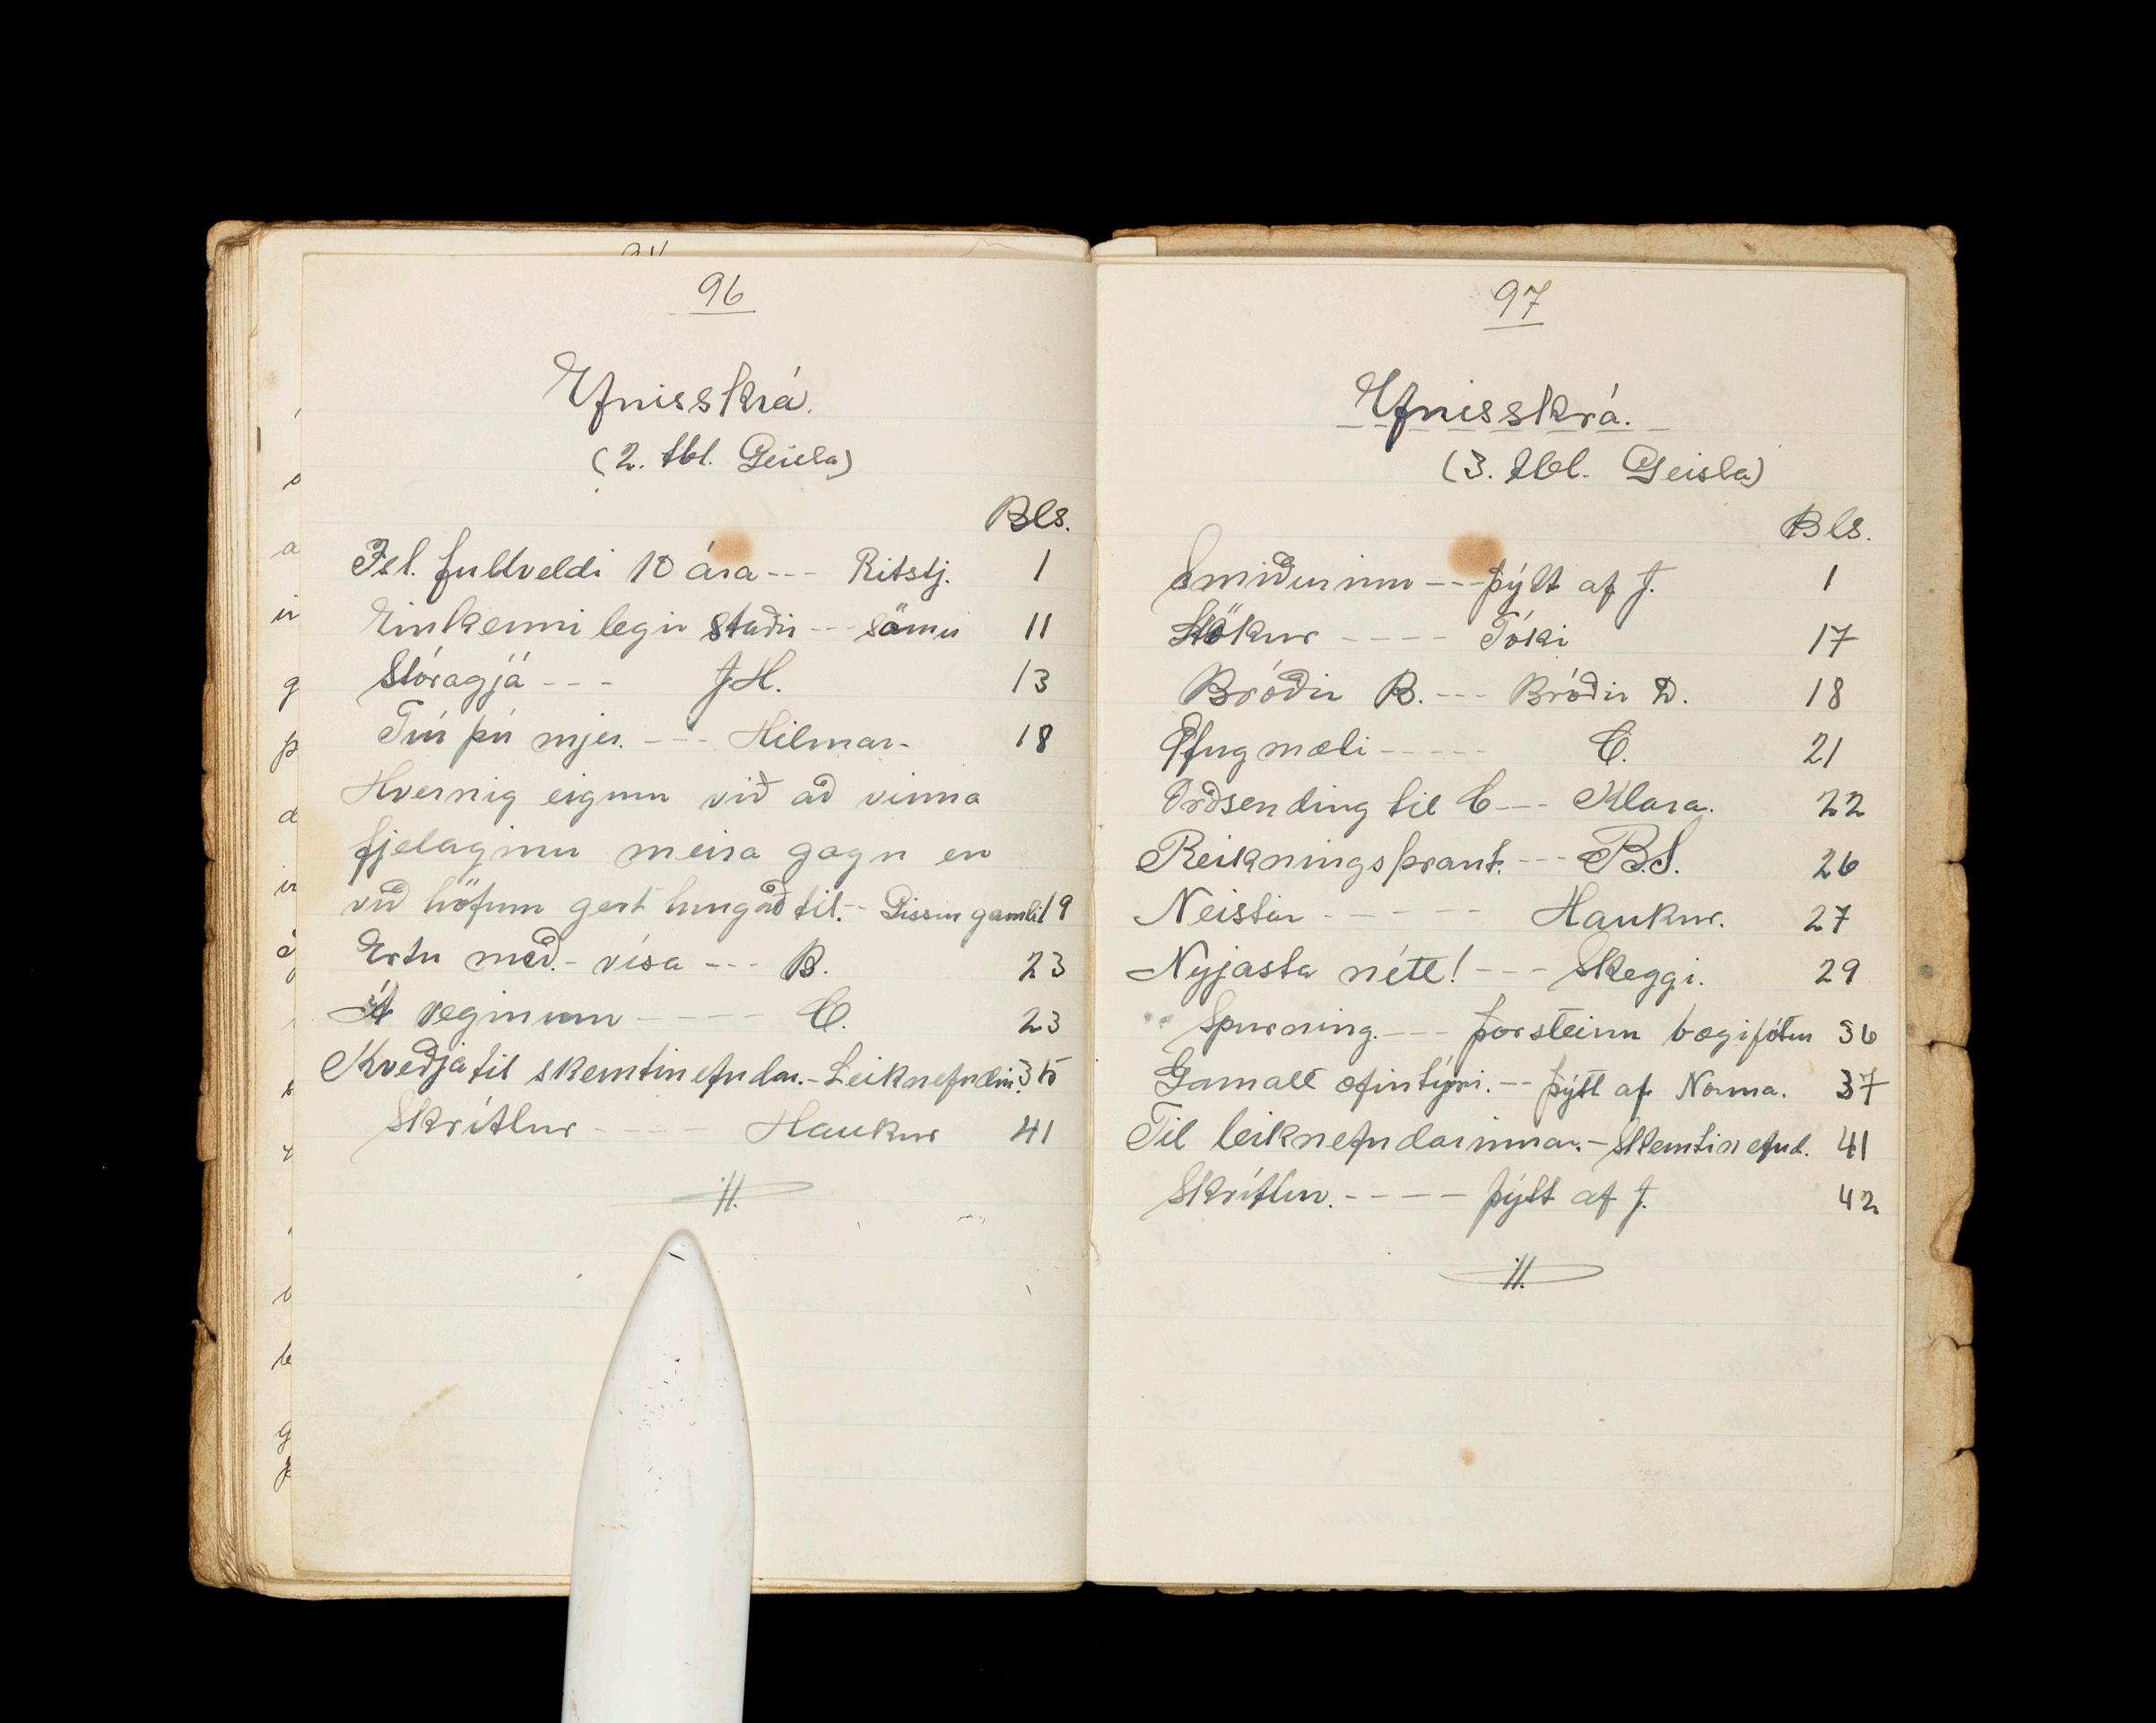 96
Efnisskrá.
(2. tbl. Geisla)
Bls.
Ísl. fullveldi 10 ára --- Ritstj. 1
Einkennilegir staðir --- sömu 11
Stóragjá --- J.H. 13
Trú þú mjer. --- Hilmar. 18
Hvernig eigum við að vinna
fjelaginu meira gagn en
við höfum gert hingað til. -- Gissur gamli 19
Ertu með. - vísa --- B. 23
Á veginum ---- C. 23
Kveðja til skemtinefndar. - Leiknefndin. 35
Skrítlur ---- Haukur 41
97
Efnisskrá.
(3. tbl. Geisla)
Bls.
Smiðurinn --- þýtt af J. 1
Stökur ---- Tóki 17
Bróðir B. --- Bróðir D. 18
Öfugmæli ----- C. 21
Orðsending til C --- Klara. 22
Reikningsþraut. --- B.S. 26
Neistar ----- Haukur. 27
Nyjasta nétt! --- Skeggi. 29
Spurning. --- Þorsteinn bægifótur 36
Gamalt æfintýri. -- þýtt af Norna. 37
Til leiknefndarinnar. - Skemtinefnd. 41
Skrítlur. ---- þýtt af J. 42